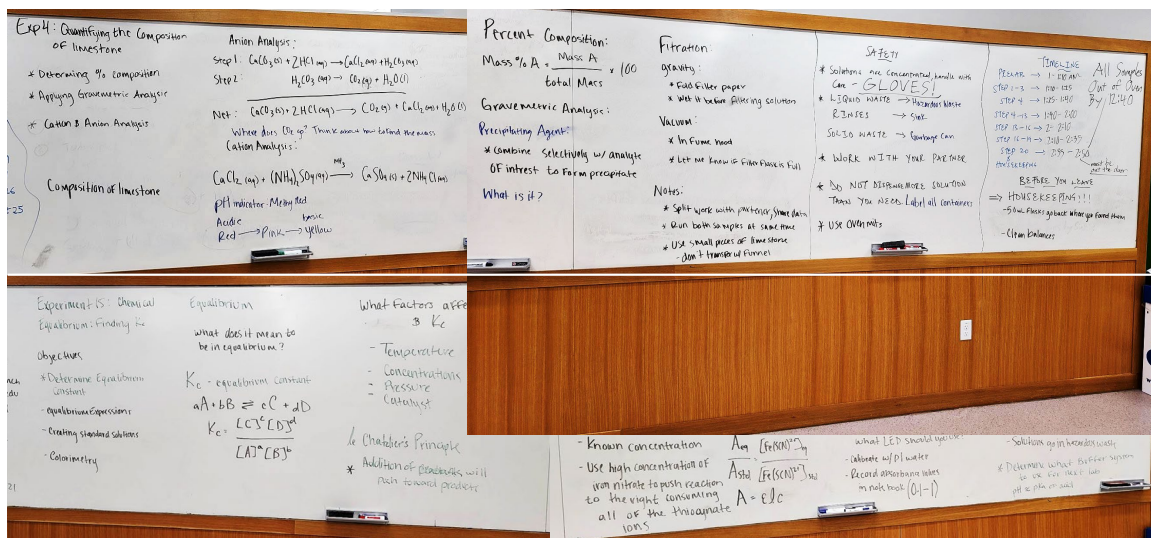 Exp4: Quantifying the Composition
of limestone
* Determing % composition
* Applying Gravemetric Analysis
* Cation & Anion Analysis
Composition of limestone
Anion Analysis:
Step 1: CaCO3(s) + 2HCl(aq) → CaCl2(aq) + H2CO3(aq)
Step 2: H2CO3(aq) → CO2(g) + H2O(l)
Net: CaCO3(s) + 2HCl(aq) → CO2(g) + CaCl2(aq) + H2O(l)
Where does CO2 go? Think about how to find the mass
Cation Analysis:
NH3
CaCl2(aq) + (NH4)2SO4(aq) → CaSO4(s) + 2NH4Cl(aq)
pH indicator: Methyl Red
Acidic basic
Red → Pink → Yellow
25
Percent Composition:
Mass % A = Mass A × 100
total Mass
Gravemetric Analysis:
Precipitating Agent:
* combine selectively w/ analyte
of intrest to form precipitate
What is it?
Filtration:
gravity:
* Fold filter paper
* Wet it before filtering solution
Vacuum:
* In Fume hood
* Let me know if Filter Flask is Full
Notes:
* Split work with partener, share data
* Run both samples at same time
* Use small pieces of limestone
- don't transfer w/ funnel
SAFETY
* Solutions are concentrated, handle with
care - GLOVES!
* LIQUID WASTE → Hazardous Waste
RINSES → Sink
SOLID WASTE → Garbage Can
* WORK WITH YOUR PARTNER
* DO NOT DISPENSE MORE SOLUTION
THAN YOU NEED. Label all containers
* USE Oven mits
TIMELINE
PRELAB → 1-1:10 AM
STEP 1-3 → 1:10-1:25
STEP 4 → 1:25-1:40
STEP 4-13 → 1:40-2:00
STEP 13-16 → 2-2:10
STEP 16-19 → 2:10-2:35
STEP 20 → 2:35-2:50
HOUSEKEEPING
All Samples
Out of Oven
By 12:40
must be
out the door
BEFORE YOU LEAVE
⇒ HOUSEKEEPING!!!
- 50mL flasks go back where you found them
- Clean balances
Experiment 15: Chemical Equilibrium
Equilibrium: Finding Kc
Objectives
* Determine Equilibrium
Constant
- equilibrium Expressions
- Creating standard solutions
- Colorimetry
21
what does it mean to
be in equilibrium?
Kc - equilibrium constant
aA + bB ⇌ cC + dD
Kc = [C]^c [D]^d
[A]^a [B]^b
What Factors affe
Kc
- Temperature
- Concentrations
- Pressure
- Catalyst
Le Chatelier's Principle
* Addition of Reactants will
push toward products
- Known concentration
- Use high concentration of
iron nitrate to push reaction
to the right consuming
all of the thiocynate
ions
Aeq [Fe(SCN)2+]eq
Astd [Fe(SCN)2+]std
A = εlc
what LED should you use?
- Calibrate w/ DI water
- Record absorbance values
in notebook (0.1-1)
- Solutions go in hazardous wash
* Determine what Buffer system
to use for next lab
pH = pKa of acid